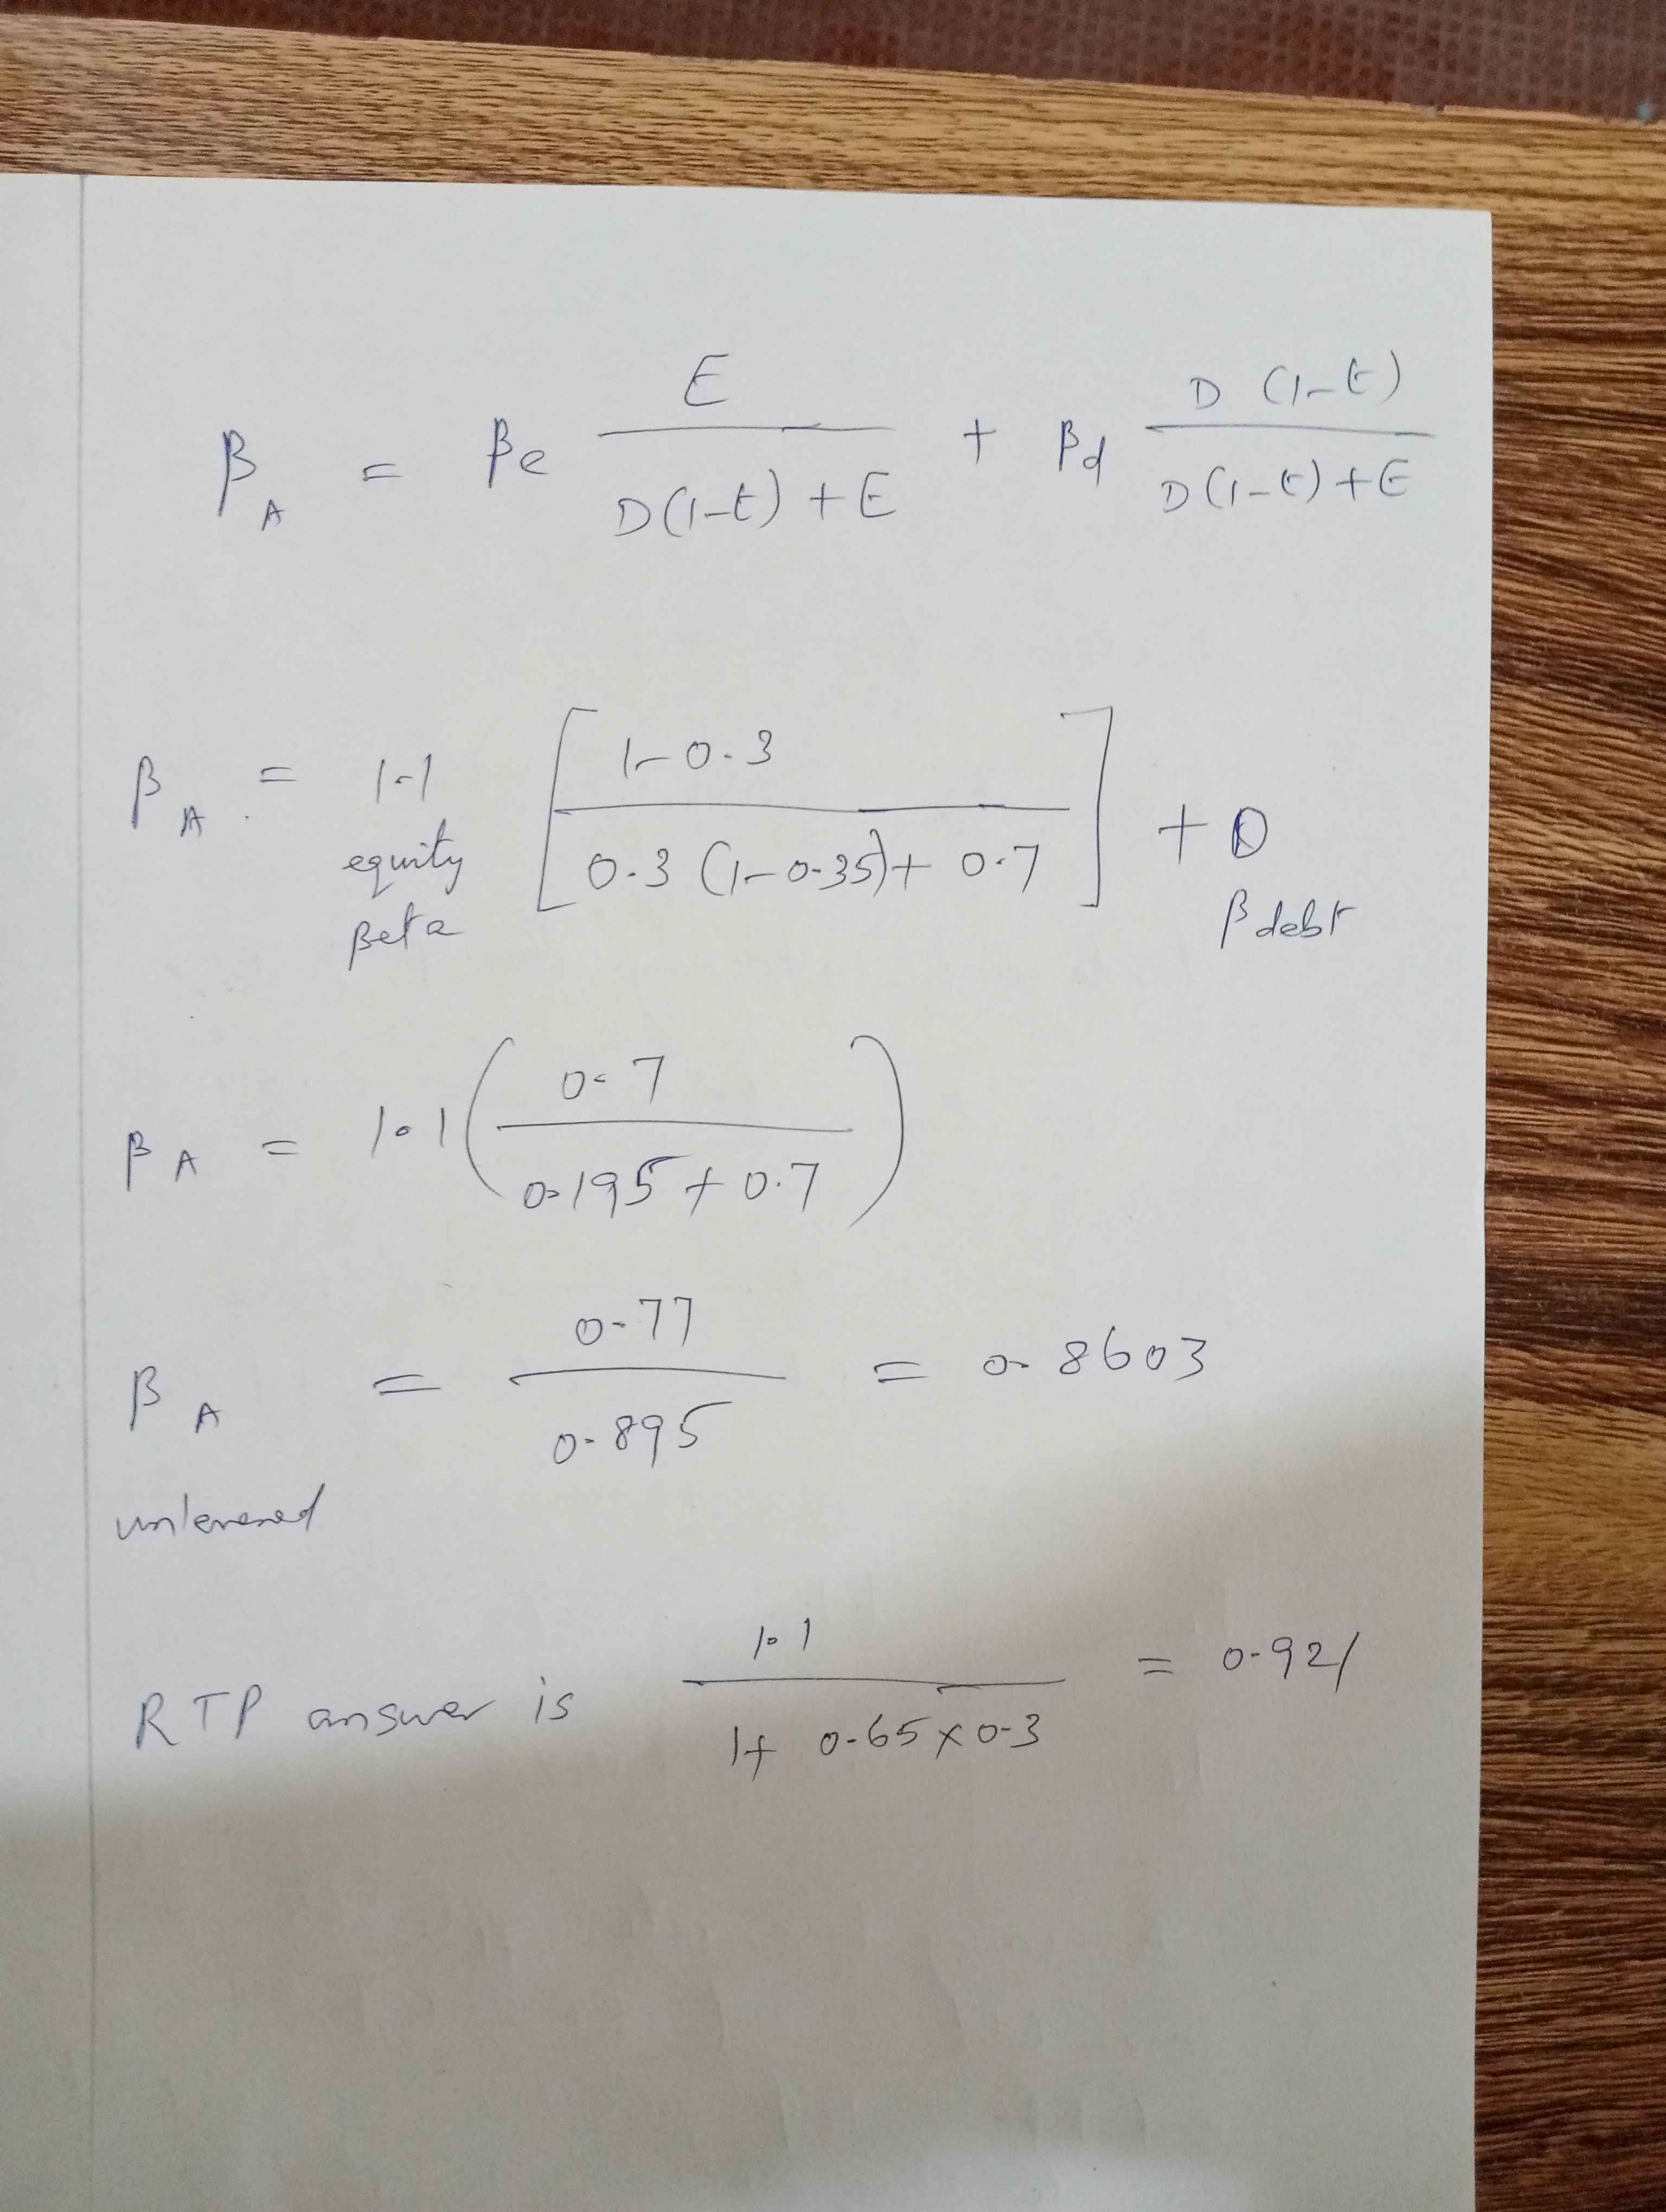 β_A = βe E / (D(1-t) + E) + βd D(1-t) / (D(1-t) + E)
β_A = 1.1 [ (1-0.3) / (0.3(1-0.35) + 0.7) ] + 0
equity Beta
β debt
β_A = 1.1 ( 0.7 / (0.195 + 0.7) )
β_A = 0.77 / 0.895 = 0.8603
unlevered
RTP answer is 1.1 / (1 + 0.65 × 0.3) = 0.921